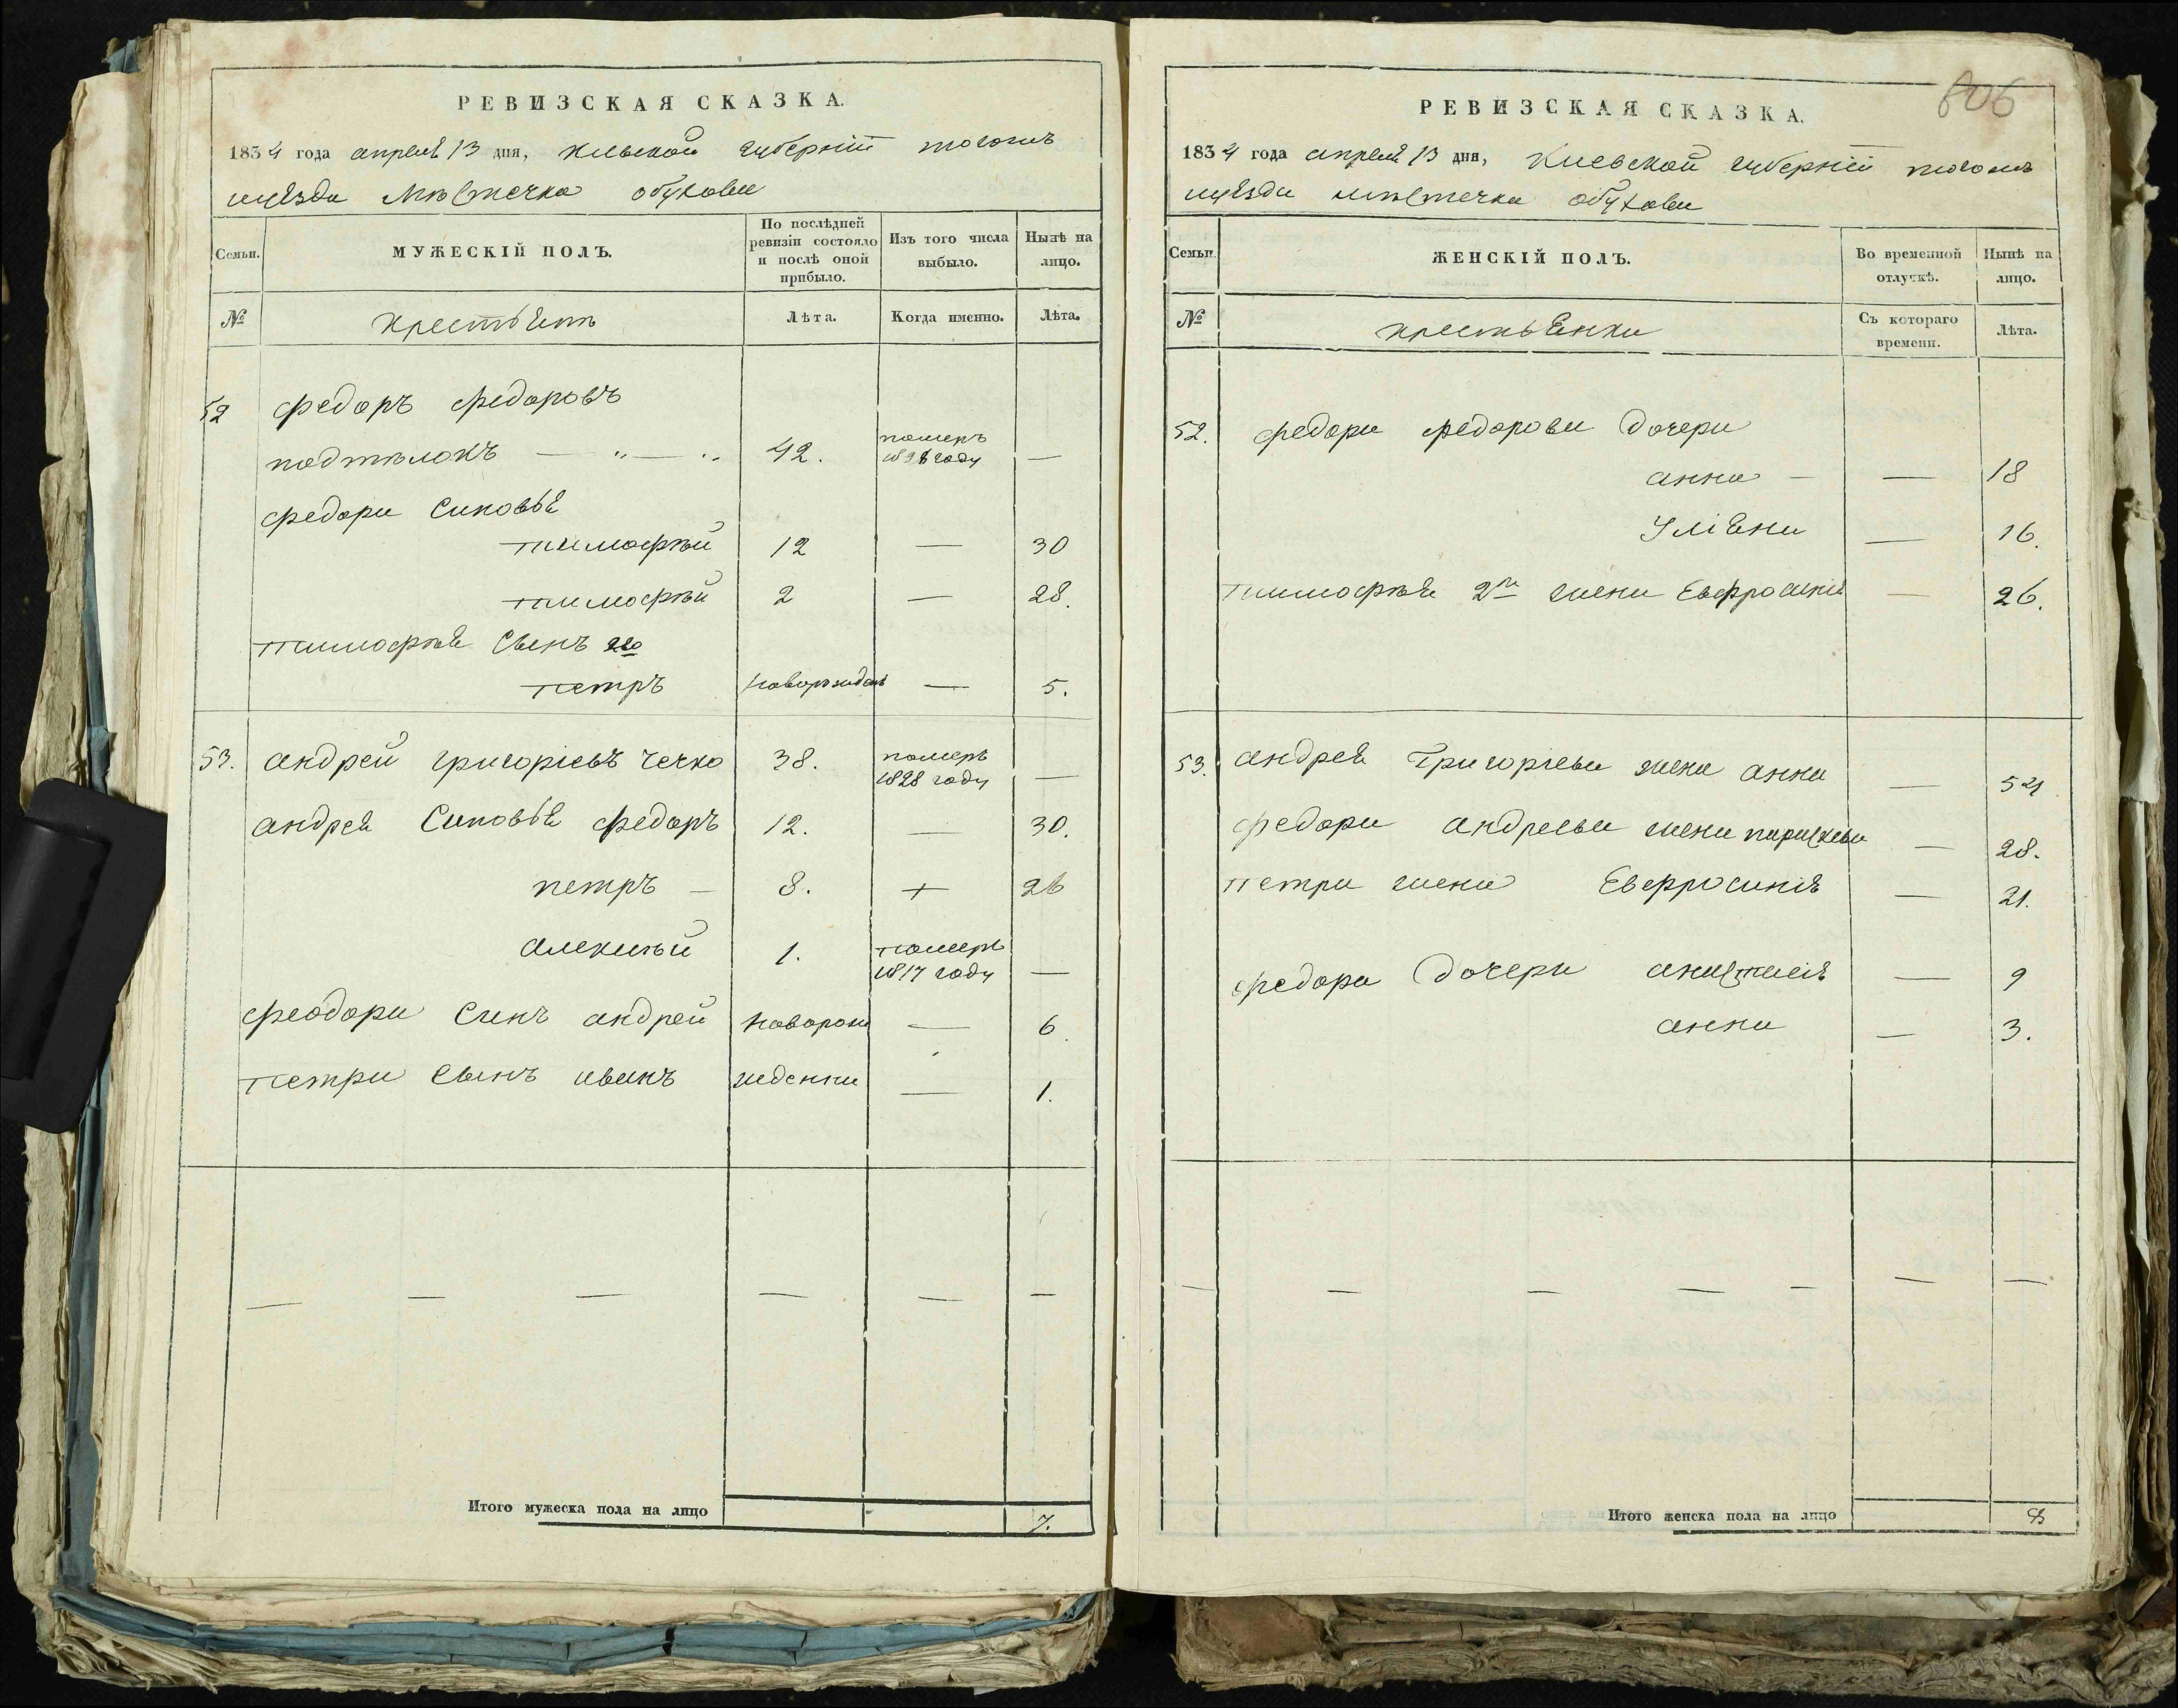 РЕВИЗСКАЯ СКАЗКА.
1834 года апреля 13 дня, Киевской губернiи тогожъ
уѣзда Мѣстечка обухова
Семьи.
МУЖЕСКIЙ ПОЛЪ.
По послѣдней ревизiи состояло и послѣ оной прибыло.
Изъ того числа выбыло.
Нынѣ на лицо.
№
крестьянъ
Лѣта.
Когда именно.
Лѣта.
52 федоръ федоровъ
подтѣлокъ — „ — „ 42. померъ 1828 году —
федора синовья
тимофѣй 12 — 30
тимофѣй 2 — 28.
тимофѣя сынъ 2го
петръ новорожденъ — 5.
53. андрей григорiевъ чечко 38. померъ 1828 году —
андрея синовья федоръ 12. — 30.
петръ — 8. + 26
алексѣй 1. померъ 1817 году —
феодора синъ андрей новорож — 6.
петра сынъ иванъ жденни — 1.
— — — — — —
Итого мужеска пола на лицо 7.
606
РЕВИЗСКАЯ СКАЗКА.
1834 года апреля 13 дня, Киевской губернiи тогожъ
уѣзда мѣстечка обухова
Семьи.
ЖЕНСКIЙ ПОЛЪ.
Во временной отлучкѣ.
Нынѣ на лицо.
№
крестьянки
Съ котораго времени.
Лѣта.
52. федора федорова дочери
анна — — 18
Улiяна — 16.
тимофѣя 2го жена Евфросинiя — 26.
53. андрея Григорiева жена анна — 54
федора андреева жена параскева — 28.
петра жена Евфросинiя — 21.
федора дочери анастасiя — 9
анна — 3.
— — — — — — —
Итого женска пола на лицо 8